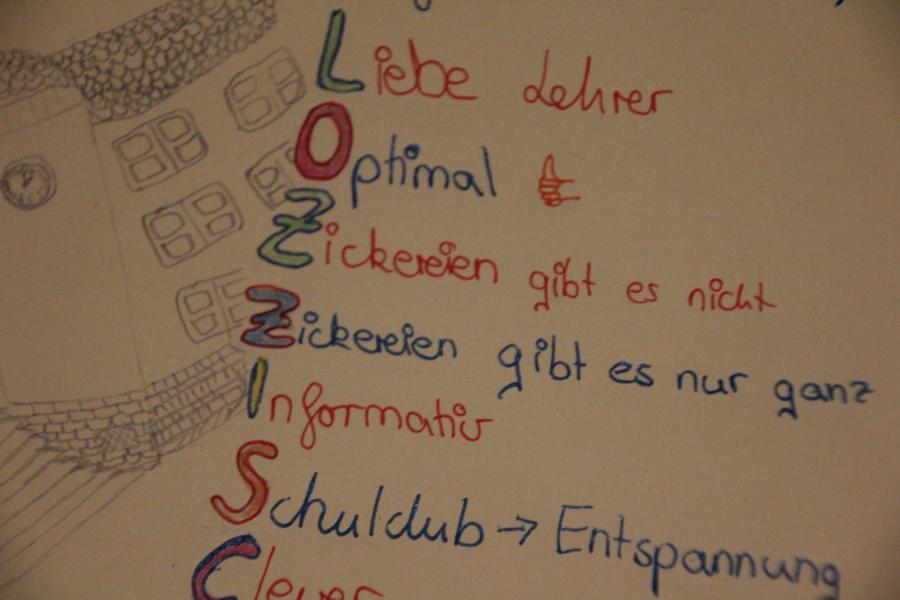 Liebe Lehrer
Optimal
Zickereien gibt es nicht
Zickereien gibt es nur ganz
Informativ
Schulclub → Entspannung
Clever